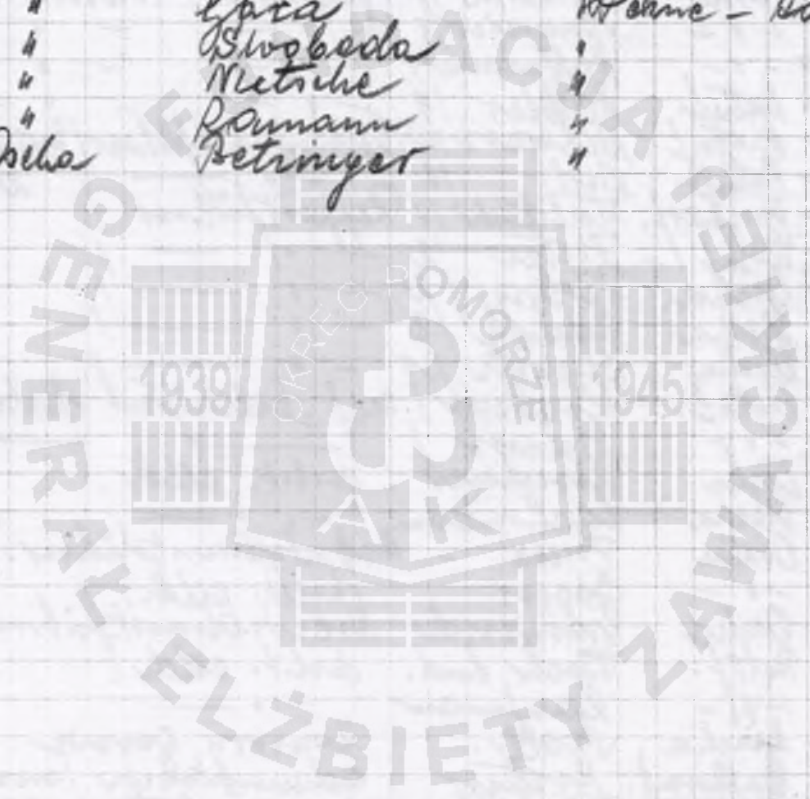 " Góra
" Swoboda "
" Nietsche "
" Ramann "
Petringer "
FUNDACJA GENERAŁ ELŻBIETY ZAWACKIEJ
OKRĘG POMORZE
1939 1945
A K